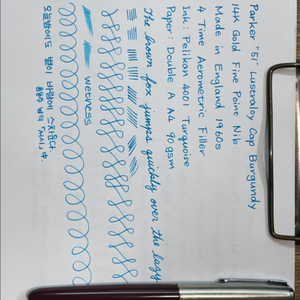 Parker '51' Lustraloy Cap Burgundy
14K Gold Fine Point Nib
Made in England 1960s
4 Time Aerometric Filler
Ink: Pelikan 4001 Turquoise
Paper: Double A A4 90gsm
The brown fox jumps quickly over the lazy
wetness
오늘밤에도 별이 바람에 스치운다.
윤동주 "서시" 中